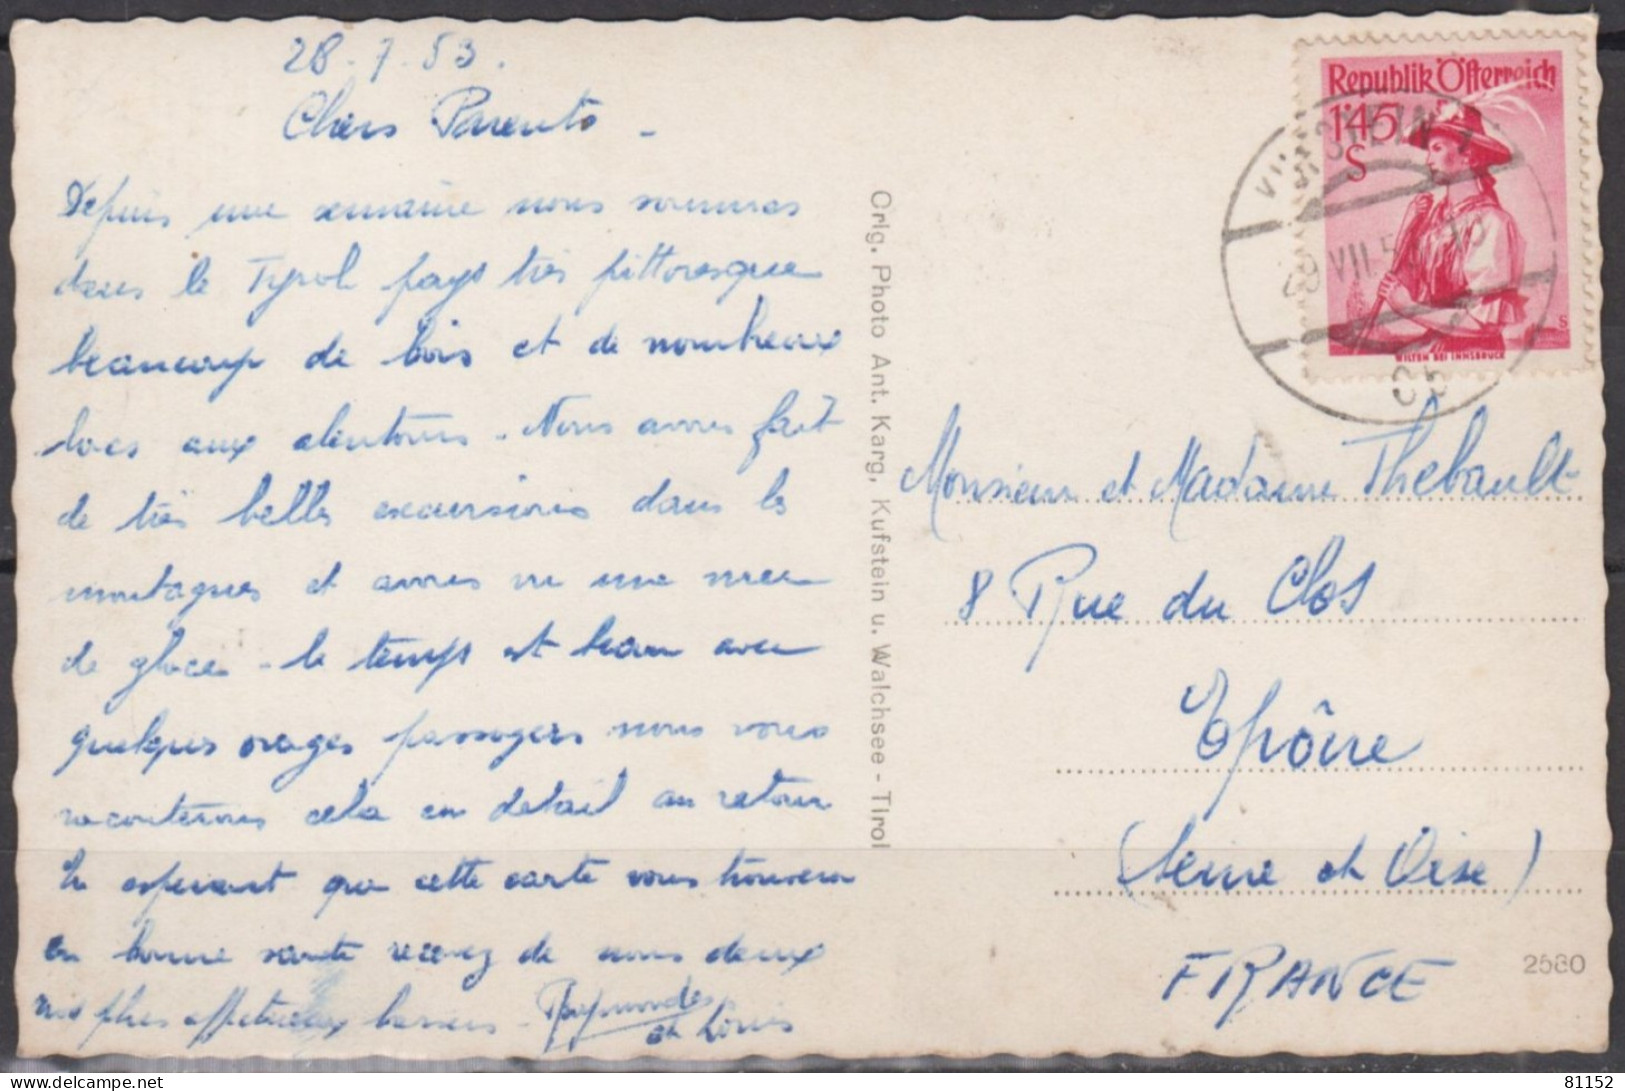 28-7-53.
Chers Parents -
Depuis une semaine nous sommes
dans le Tyrol pays très pittoresque
beaucoup de bois et de nombreux
lacs aux alentours - Nous avons fait
de très belles excursions dans les
montagnes et avons vu une mer
de glace - le temps est beau avec
quelques orages passagers nous vous
raconterons cela en detail au retour
En esperant que cette carte vous trouvera
en bonne santé recevez de nous deux
nos plus affectueux baisers - Raymonde
et Louis
Orig. Photo Ant. Karg, Kufstein u. Walchsee - Tirol
Republik Österreich
1'45
S
WILTEN BEI INNSBRUCK
KUFSTEIN 1
28 VII.5
Monsieur et Madame Thebault
8 Rue du Clos
Epône
(Seine et Oise)
FRANCE
2580
©bonnal
81152